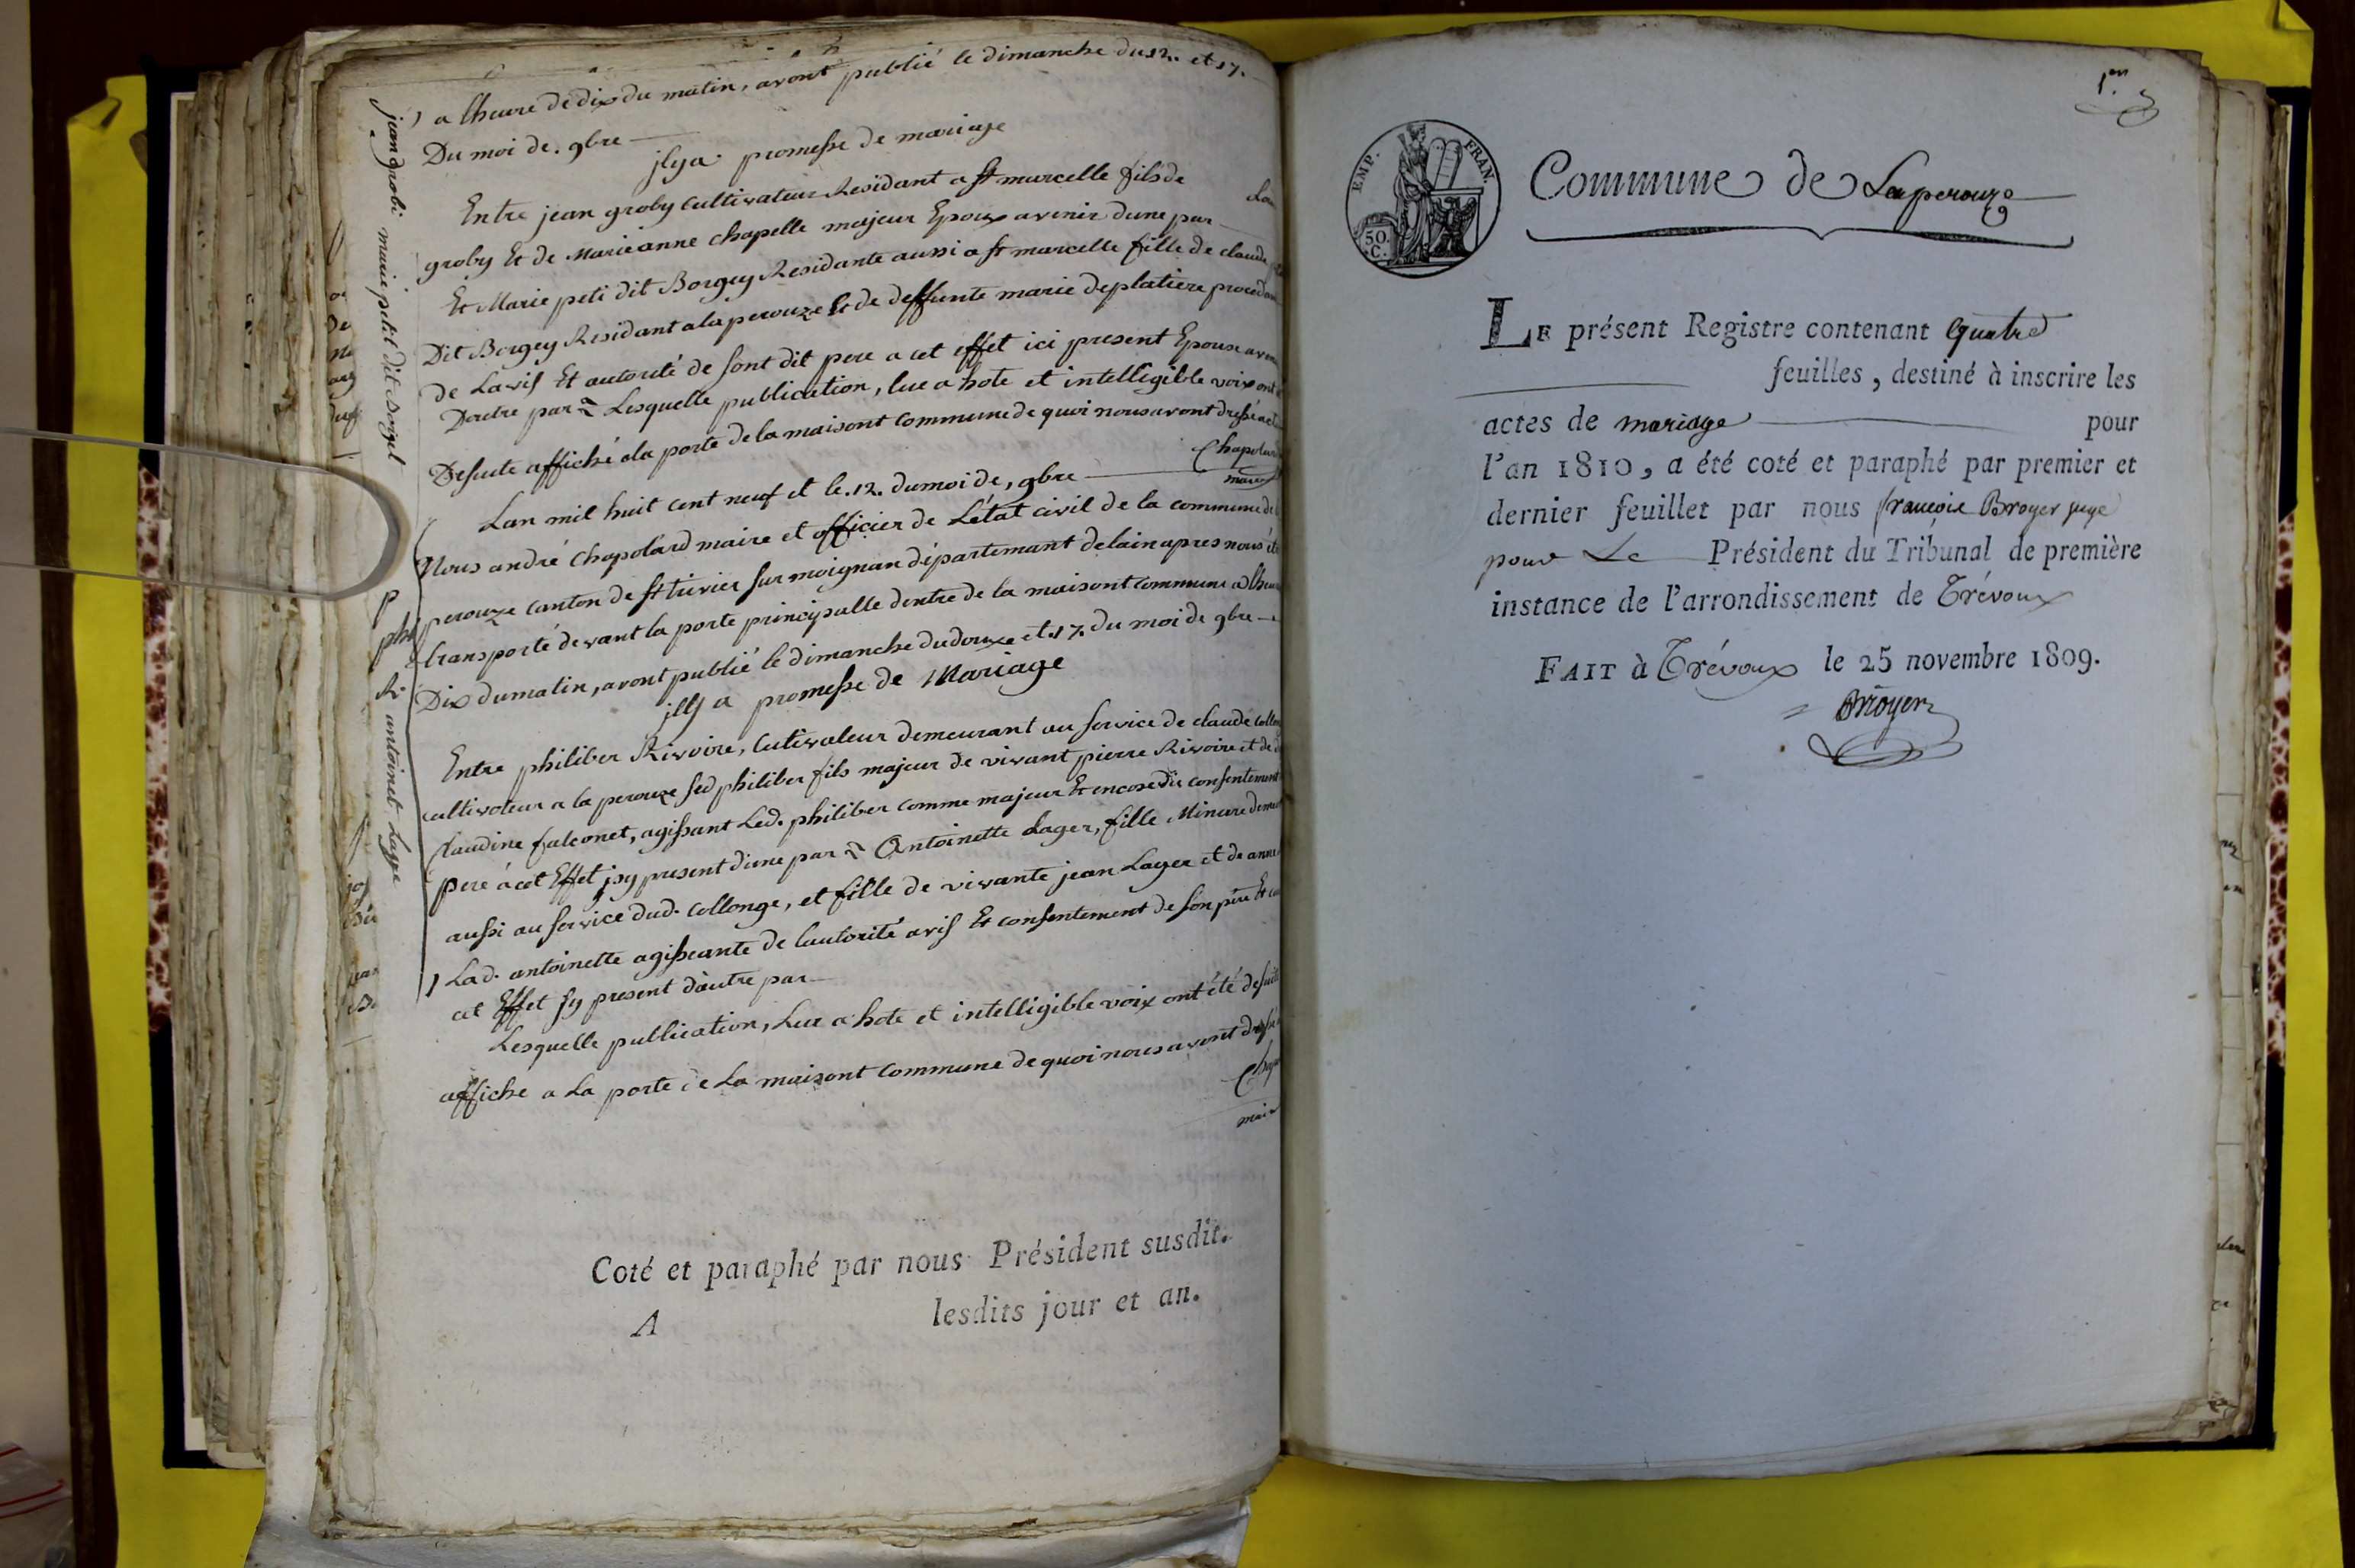 a lheure de dix du matin, avont publié le dimanche du 12. et 17.
Du moi de. 9bre
jlya promesse de mariage
Entre jean groby cultivateur Residant a st marcelle fils de
groby Et de Marieanne chapelle majeur Epoux avenir dune par
Et Marie peti dit Borgey Residante aussi a st marcelle fille de claude
Dit Borgey Residant a la perouze Et de deffunte marie deplatiere procedant
de Lavis Et autorité de sont dit pere a cet effet ici present Epouse aven
Dautre par Lesquelle publication, lue a hote et intelligible voix ont
Desuite affiché ala porte de la maisont commune de quoi nous avont dressé act
Chapolard
maire
Lan mil huit cent neuf et le .12. du moi de, 9bre
Nous andré chapolard maire et officier de Létat civil de la commune de
perouze canton de st trivier sur moignan département delain apres nous ét
transporté devant la porte principalle dentre de la maisont commune a lheu
Dix dumatin, avont publié le dimanche du douze et .17. du moi de 9bre
jlly a promesse de Mariage
Entre philiber Rivoire, Cultivateur demeurant au service de claude collon
cultivateur a la perouze led philiber fils majeur de vivant pierre Rivoire et de
Claudine falconet, agissant Led. philiber comme majeur Et encore du consentement
pere à cet Effet jsy present d'une par Antoinette Lager, fille Minure deme
aussi au service dud. collonge, et fille de vivante jean Lager et de anne
Lad. antoinette agisseante de lautorité avis Et consentement de son père Et
cet Effet sy present d'autre par
Lesquelle publication, Lue a hote et intelligible voix ont été desuite
affiche a La porte de La maisont commune de quoi nous avont dressé
Chap
mair
Coté et paraphé par nous Président susdit.
A lesdits jour et an.
jean grobi marie petit dit Borget
antoinet Lage
1er
EMP. FRAN.
50.
C.
Commune de Laperouze
Le présent Registre contenant quatre
feuilles, destiné à inscrire les
actes de mariage pour
l'an 1810, a été coté et paraphé par premier et
dernier feuillet par nous françois Broyer juge
pour Le Président du Tribunal de première
instance de l'arrondissement de Trévoux
Fait à Trévoux le 25 novembre 1809.
Broyer